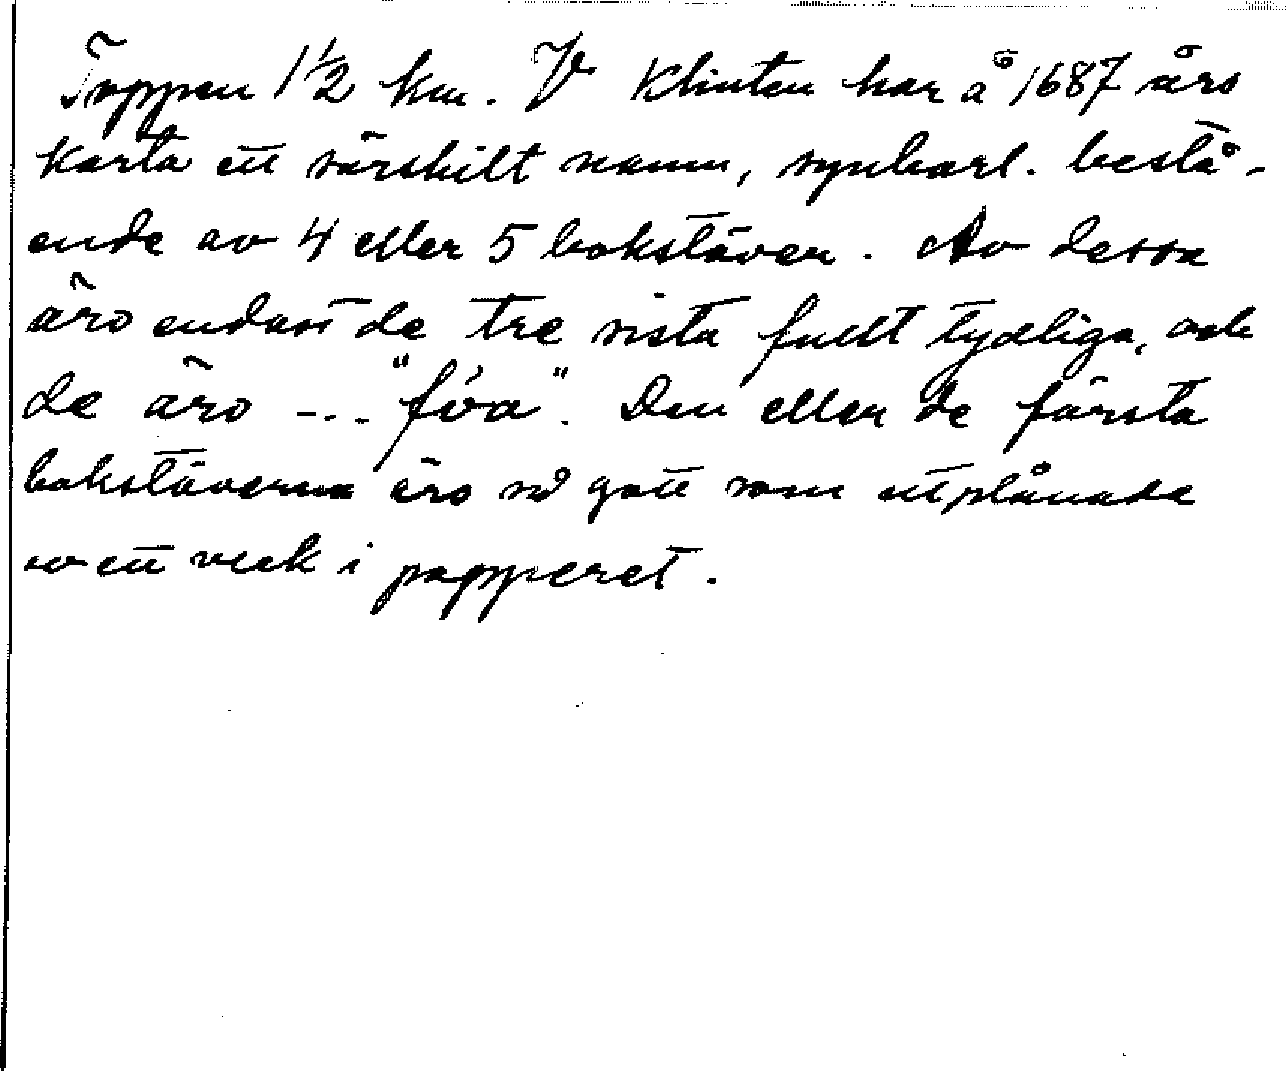 Toppen 1 1/2 km. V Klinten har å 1687 års
karta ett särskilt namn, synbarl. bestå-
ende av 4 eller 5 bokstäver. Av dessa
äro endast de tre sista fullt tydliga, och
de äro -.. "föa". Den eller de första
bokstäverna äro så gott som utplånade
av ett veck i papperet.